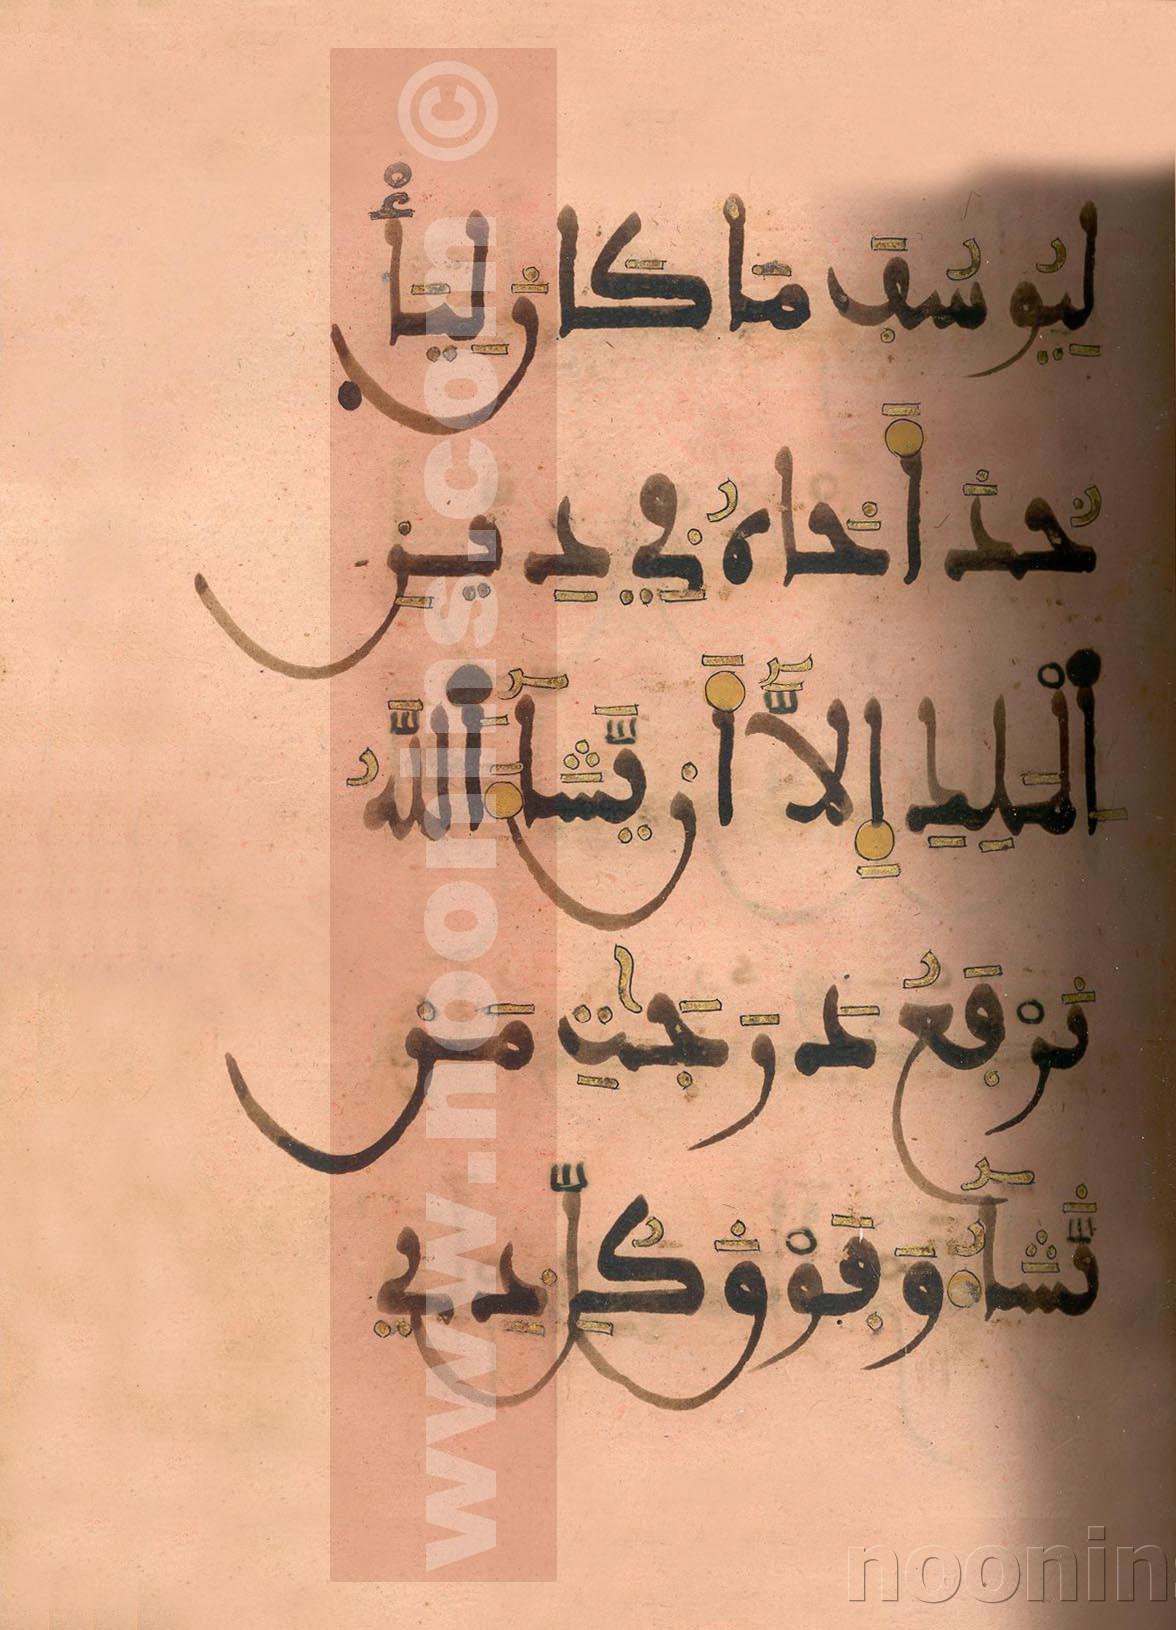 لِيُوسُفَ مَا كَانَ لِيَأْ
خُذَ أَخَاهُ فِي دِينِ
ٱلْمَلِكِ إِلَّا أَن يَّشَآءَ ٱللَّهُ
نَرْفَعُ دَرَجَٰتِ مَن
نَّشَآءُ وَفَوْقَ كُلِّ ذِي
www.noonins.com ©
noonin